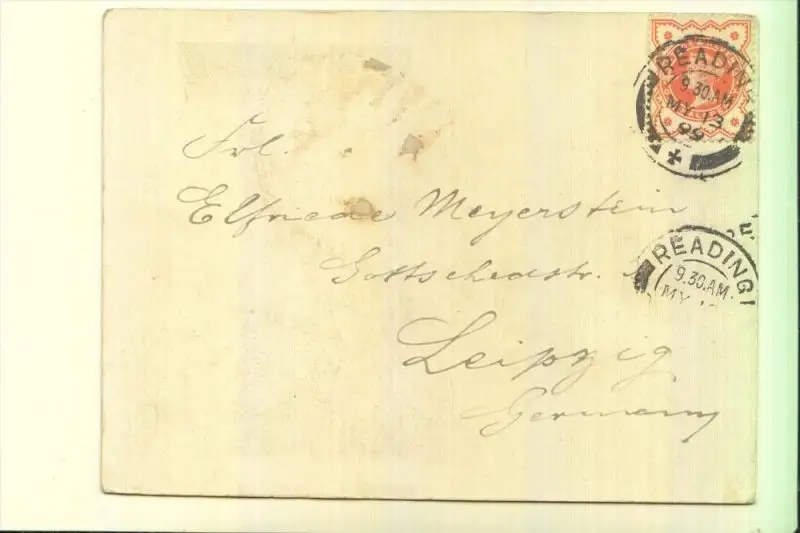 READING
9.30.AM
MY 13
99
Frl.
Elfriede Meyerstein
Gottschedstr.
Leipzig
Germany
READING
9.30.AM.
MY